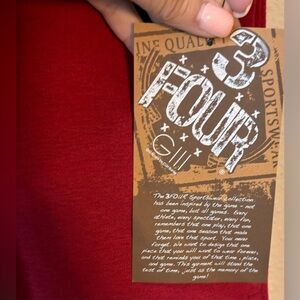 INE QUALIT
SPORTSWEAR
3
FOUR
GIII
The 3FOUR Sportswear collection
has been inspired by the game - not
one game, but all games. Every
athlete, every spectator, every fan,
remembers that one play, that one
game, that one season that made
them love that sport. You never
forget. We want to design that one
piece that you will want to wear forever,
and that reminds you of that time, place,
and game. This garment will stand the
test of time, just as the memory of the
game!